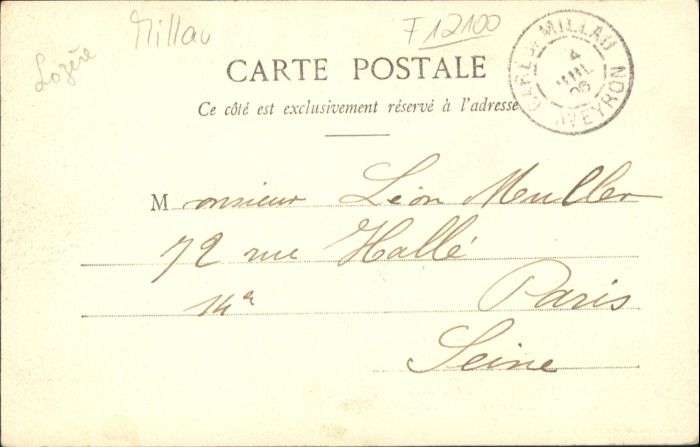 Lozère
Millau
F 12100
GARE DE MILLAU
4
JUIL
06
AVEYRON
CARTE POSTALE
Ce côté est exclusivement réservé à l'adresse
Monsieur Léon Muller
72 rue Hallé
14e Paris
Seine